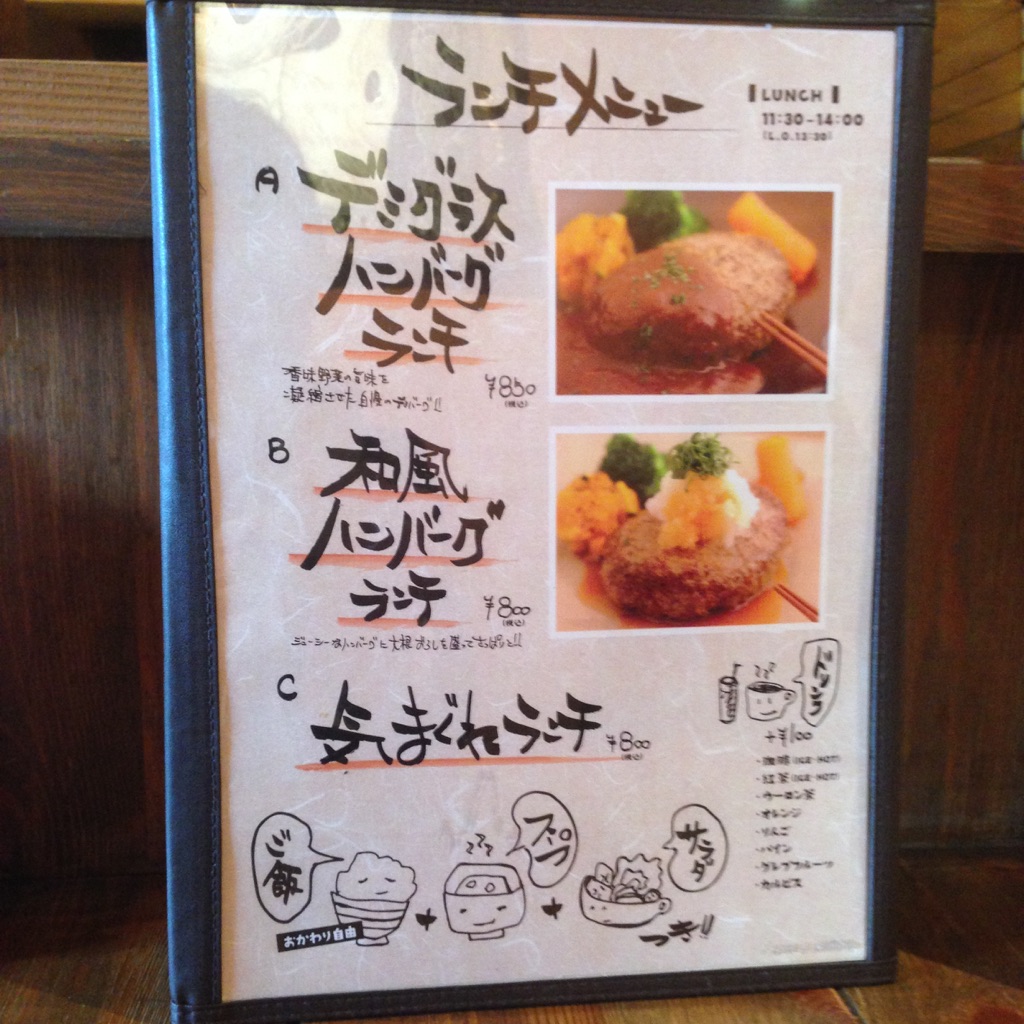 ランチメニュー
▌LUNCH▐
11:30-14:00
(L.O.13:30)
A
デミグラス
ハンバーグ
ランチ
香味野菜の旨味を
凝縮させた自慢のデミバーグ!!
¥850
(税込)
B
和風
ハンバーグ
ランチ
¥800
(税込)
ジューシーなハンバーグに大根おろしを盛ってさっぱりと!!
C
気まぐれランチ
¥800
(税込)
ドリンク
+¥100
・珈琲(ICE・HOT)
・紅茶(ICE・HOT)
・ウーロン茶
・オレンジ
・りんご
・パイン
・グレープフルーツ
・カルピス
ご飯
おかわり自由
+
スープ
+
サラダ
つき!!